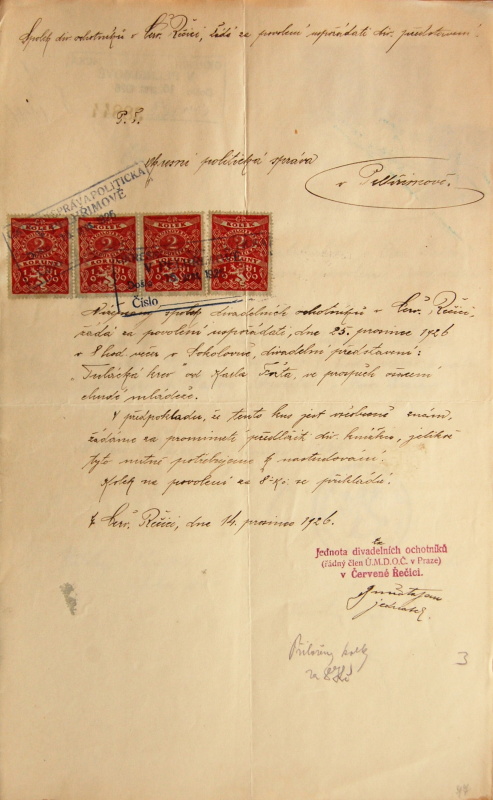 Spolek div. ochotníků v Červ. Řečici, žádá za povolení uspořádati div. představení.
P. T.
Okresní politická správa
v Pelhřimově.
SPRÁVA POLITICKÁ
KOLEK KOLEK KOLEK KOLEK
2 2 2 2
KORUNY KORUNY KORUNY KORUNY
Došlo
Číslo
spolek divadelních ochotníků v Červ. Řečici,
žádá za povolení uspořádati, dne 25. prosince 1926
v 8 hod. večer v Sokolovně, divadelní představení:
„Tulácká krev" od Karla Fořta, ve prospěch ošacení
chudé mládeže.
V předpokladu, že tento kus jest všeobecně znám,
žádáme za prominutí předložiti div. knížku, jelikož
tyto nutně potřebujeme k nastudování.
Kolek na povolení za 8 Kč. se přikládá.
V Červ. Řečici, dne 14. prosince 1926.
za
Jednota divadelních ochotníků
(řádný člen Ú.M.D.O.Č. v Praze)
v Červené Řečici.
jednatel.
Přiloženy kolky
za 8 Kč
3